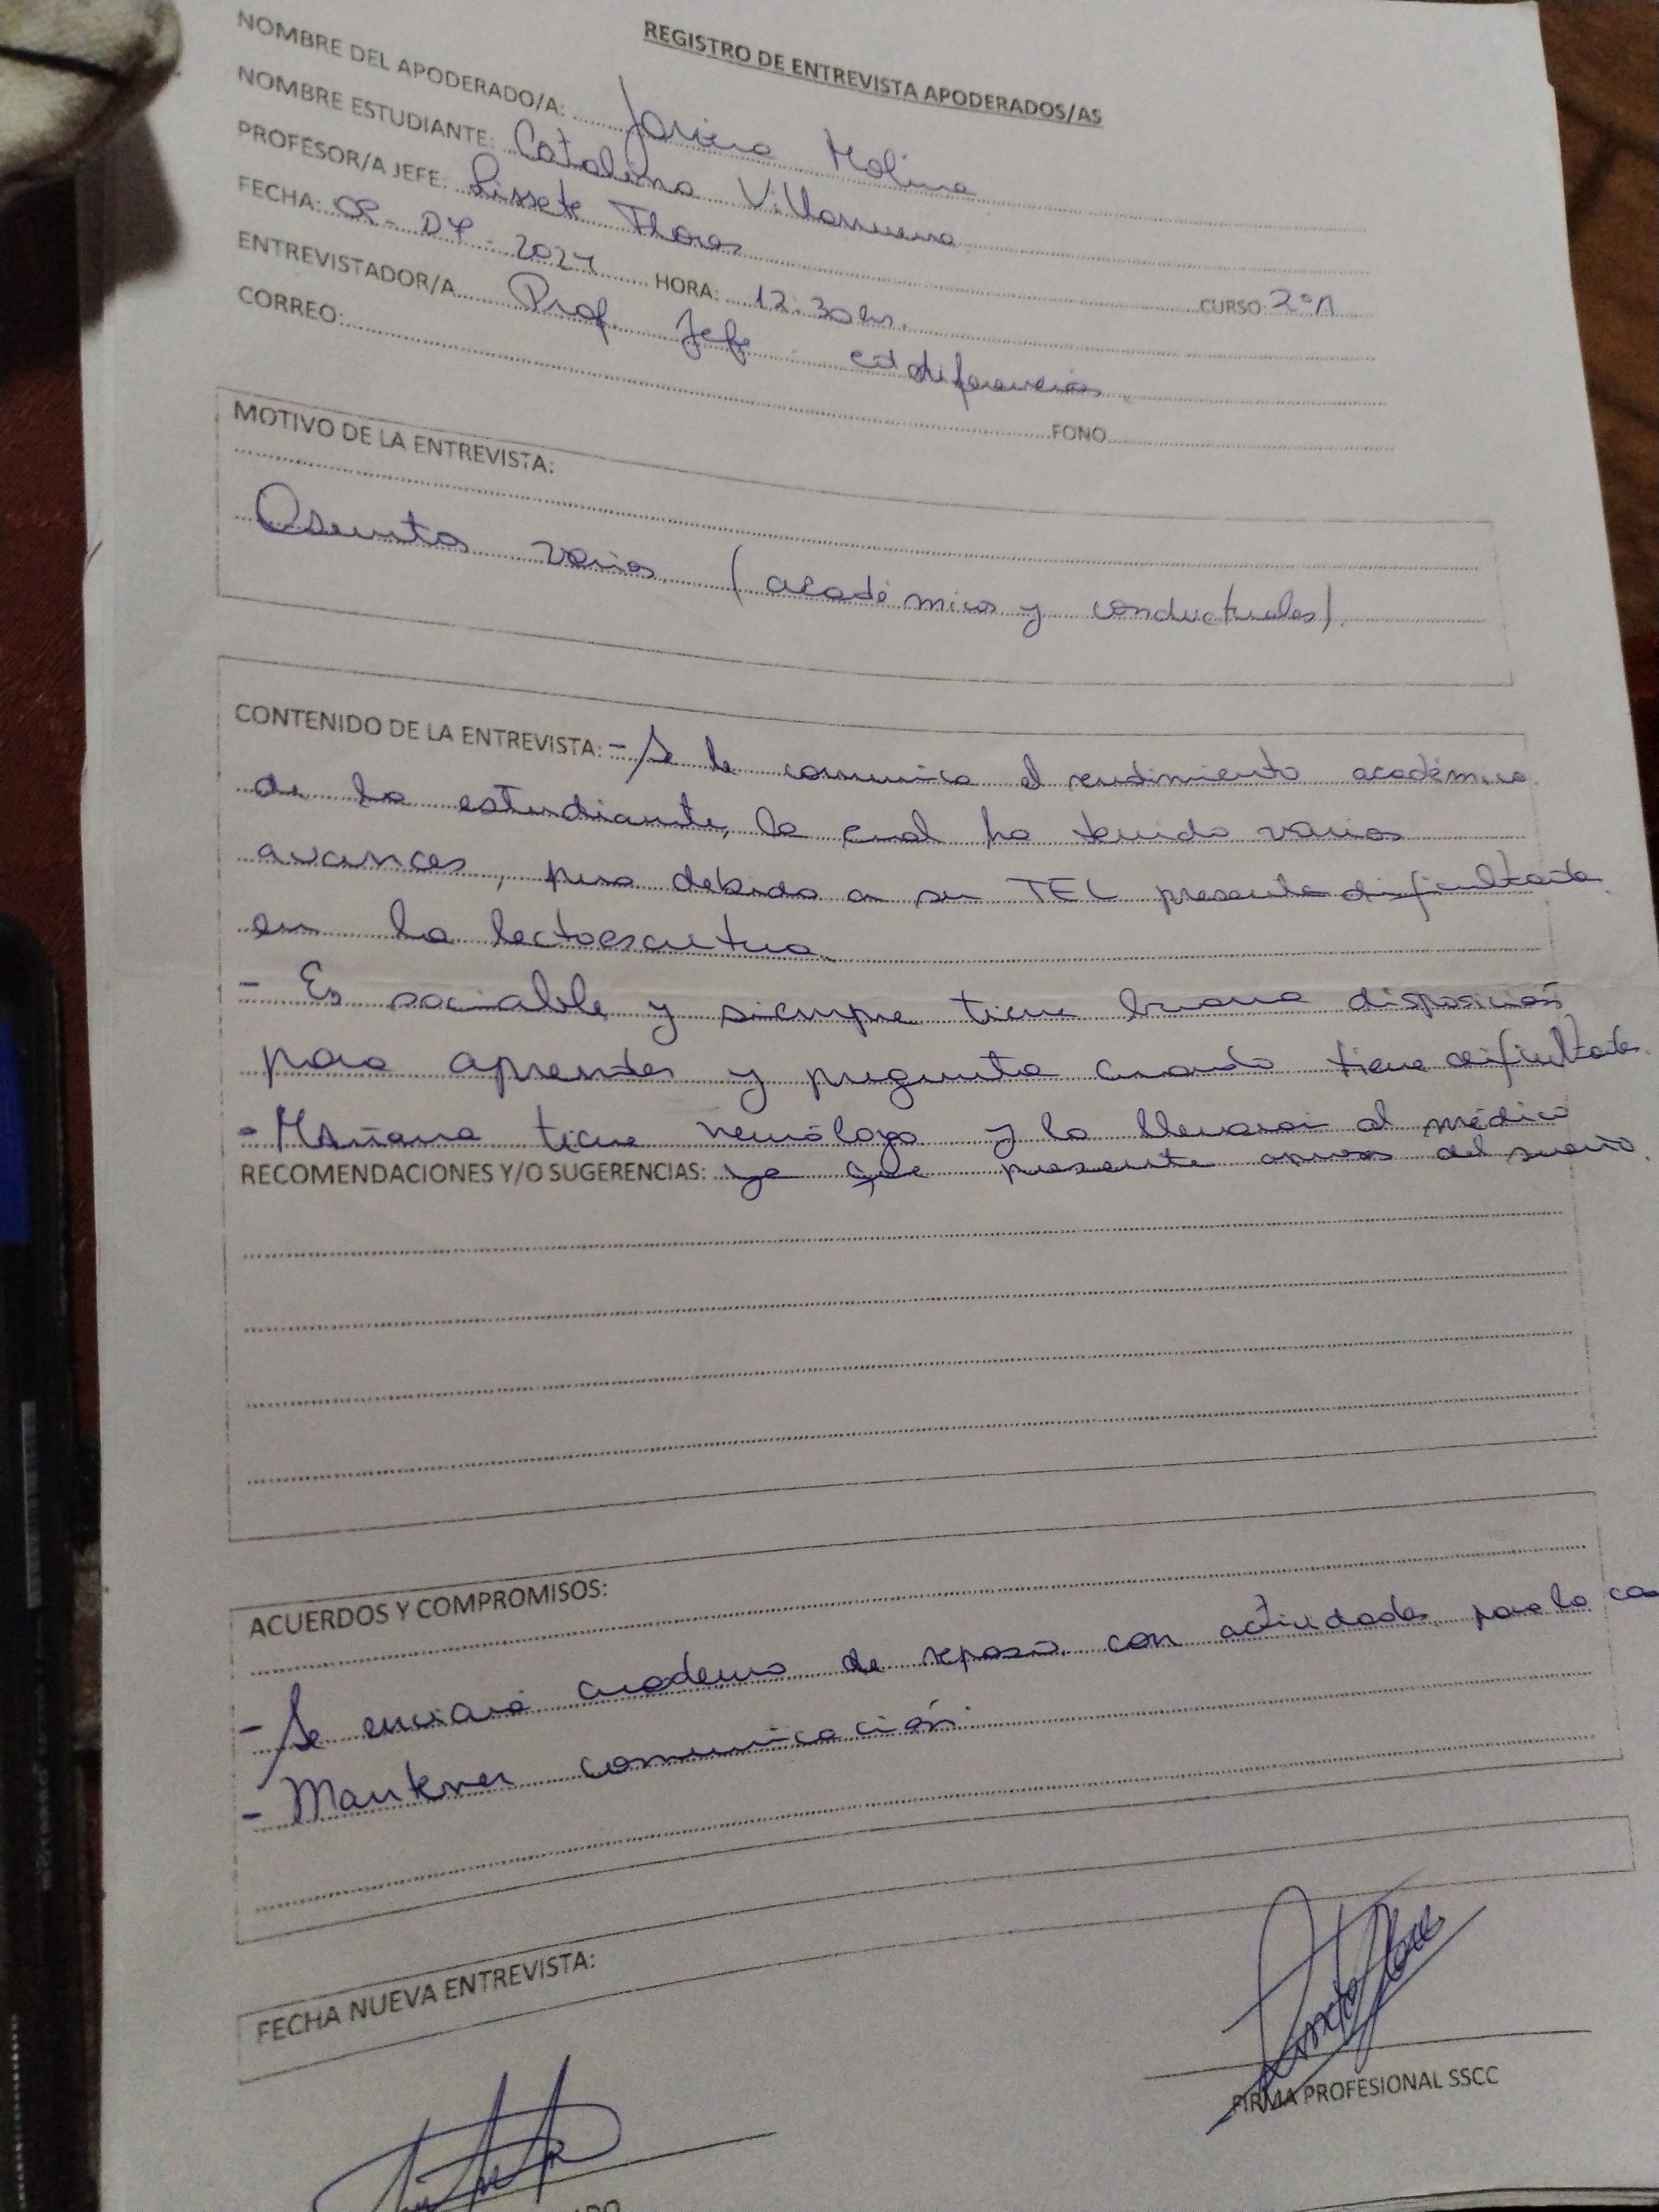 REGISTRO DE ENTREVISTA APODERADOS/AS
NOMBRE DEL APODERADO/A: Javiera Molina
NOMBRE ESTUDIANTE: Catalina Villanueva
PROFESOR/A JEFE: Lissete Flores CURSO 2°A
FECHA: 02-07-2024 HORA: 12:30 hrs.
ENTREVISTADOR/A Prof. Jefe - ed diferencias.
CORREO: FONO
MOTIVO DE LA ENTREVISTA:
Asuntos varios (académicos y conductuales).
CONTENIDO DE LA ENTREVISTA: - Se le comunica el rendimiento académico
de la estudiante, la cual ha tenido varios
avances, pero debido a su TEL presenta dificultades
en la lectoescritura.
- Es sociable y siempre tiene buena disposición
para aprender y pregunta cuando tiene dificultades.
- Mañana tiene y la llevarán al médico
RECOMENDACIONES Y/O SUGERENCIAS: ya que presenta apneas del sueño.
ACUERDOS Y COMPROMISOS:
- Se enviará cuaderno de repaso con actividades para la cas
- Mantener comunicación.
FECHA NUEVA ENTREVISTA:
FIRMA PROFESIONAL SSCC